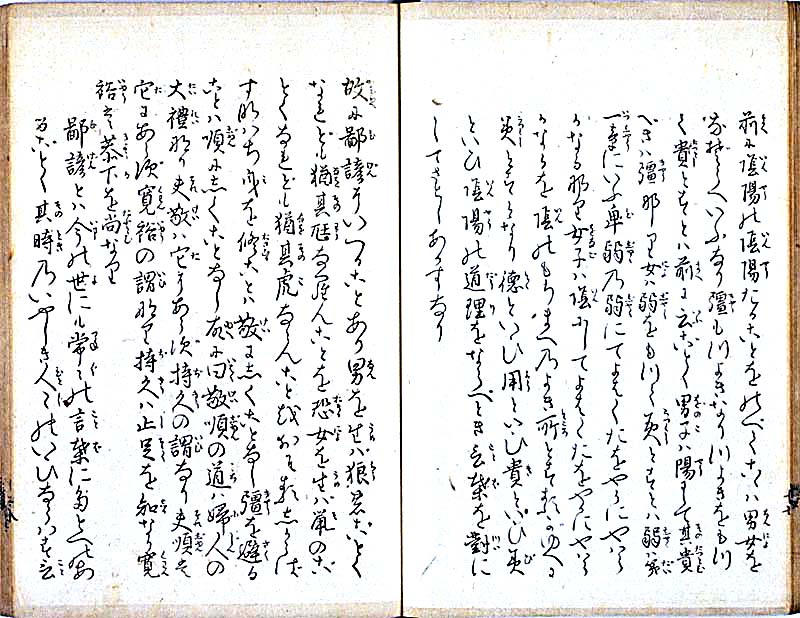 前に陰陽の陰陽たることをのべしハ男女を
なぞらへいふなり彊もつよきなりつよきをもつ
て貴とすとハ前に云ごとく男子ハ陽にて其貴
べきハ彊なり女ハ弱をもつて美とすとハ弱ハ第
一章にいふ卑弱の弱にてよハくたをやかにやハら
かなるなり女子ハ陰にしてよハくたをやかにやハら
かなるを陰のもちまへのよき所とするがゆへに
美とするなり徳といひ用といひ貴といひ美
といひ陰陽の道理をならべとき言葉を對に
してさとしあかすなり
故に鄙諺にいへることあり男を生ハ狼のごとく
なれども猶其尫ならんことを恐女を生ハ鼠のご
とくなれども猶其虎ならんことをおそるしかれば
すなハち身を修ことハ敬にしくことなし彊を避る
ことハ順にしくことなし故に曰敬順の道ハ婦人の
大禮なり夫敬ハ它にあらず持久の謂なり夫順ハ
它にあらず寛裕の謂なり持久ハ止足を知なり寛
裕ハ恭下を尚なり
鄙諺とハ今の世にも常々の言葉にたとへあ
るごとく其時のいやしき人々のいひならハす